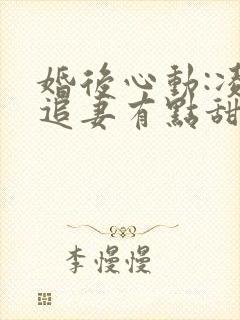 婚後心動:凌
追妻有點甜
李慢慢